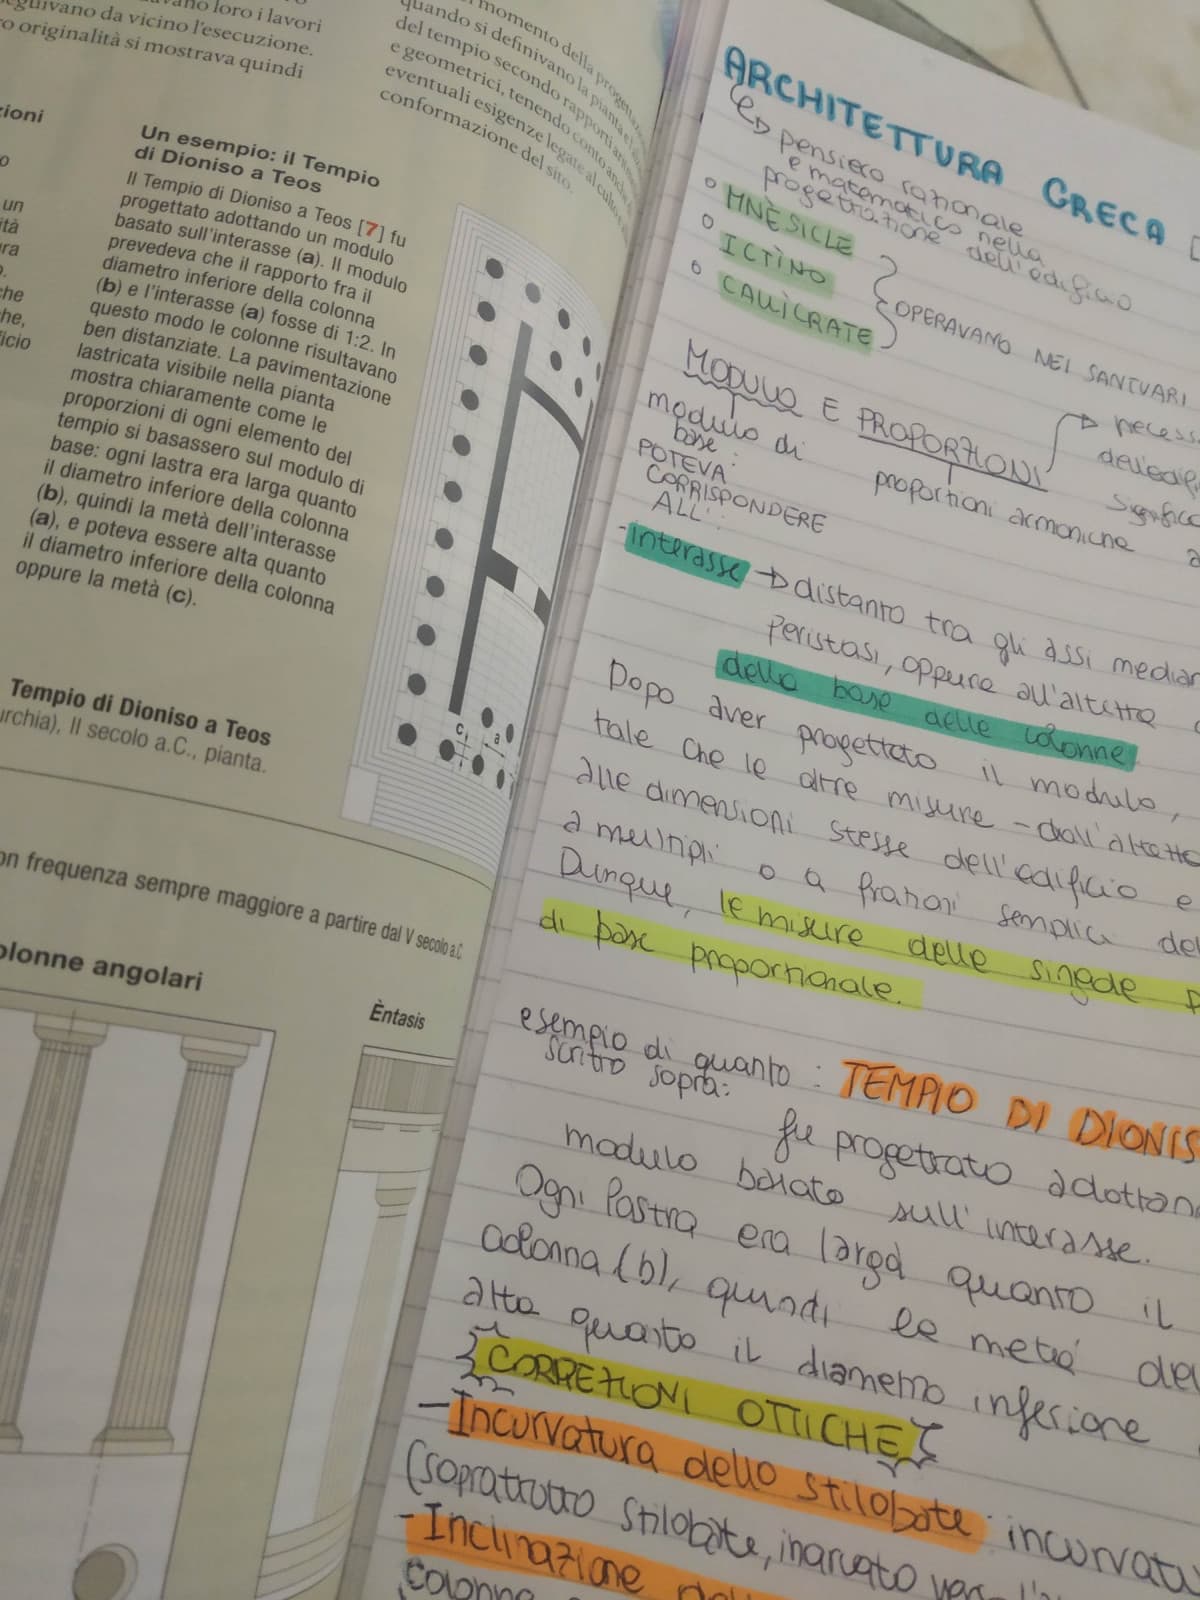 loro i lavori
seguivano da vicino l'esecuzione.
originalità si mostrava quindi
momento della
quando si definivano la pianta e
del tempio secondo rapporti
e geometrici, tenendo conto anche
eventuali esigenze legate al culto
conformazione del sito.
zioni
un
ità
che
che,
ficio
Un esempio: il Tempio
di Dioniso a Teos
Il Tempio di Dioniso a Teos [7] fu
progettato adottando un modulo
basato sull'interasse (a). Il modulo
prevedeva che il rapporto fra il
diametro inferiore della colonna
(b) e l'interasse (a) fosse di 1:2. In
questo modo le colonne risultavano
ben distanziate. La pavimentazione
lastricata visibile nella pianta
mostra chiaramente come le
proporzioni di ogni elemento del
tempio si basassero sul modulo di
base: ogni lastra era larga quanto
il diametro inferiore della colonna
(b), quindi la metà dell'interasse
(a), e poteva essere alta quanto
il diametro inferiore della colonna
oppure la metà (c).
c
a
Tempio di Dioniso a Teos
urchia), II secolo a.C., pianta.
on frequenza sempre maggiore a partire dal V secolo a.C.
olonne angolari
Èntasis
ARCHITETTURA GRECA [
pensiero razionale
e matematico nella
progettazione dell'edificio
MNÈSICLE
ICTÌNO
CALLÌCRATE
OPERAVANO NEI SANTUARI
MODULO E PROPORZIONI
modulo di
base:
POTEVA
CORRISPONDERE
ALL':
necess
dell'edifi
significa
proportioni armoniche
-interasse → distanto tra gli assi median
peristasi, oppure all'altetta
della base delle colonne
Dopo aver progettato il modulo,
tale che le altre misure - dall'altetto
alle dimensioni stesse dell'edificio e
a multipli o a frazioni semplici del
Dunque, le misure delle singole p
di base proportionale.
esempio di quanto :
scritto sopra:
TEMPIO DI DIONIS
fu progettato adottan
modulo basato sull'interasse.
Ogni lastra era larga quanto il
colonna (b), quindi la metà del
alta quanto il diametro inferiore
CORREZIONI OTTICHE
- Incurvatura dello stilobate: incurvatu
(soprattutto stilobate, inarcato
- Inclinazione
colonne